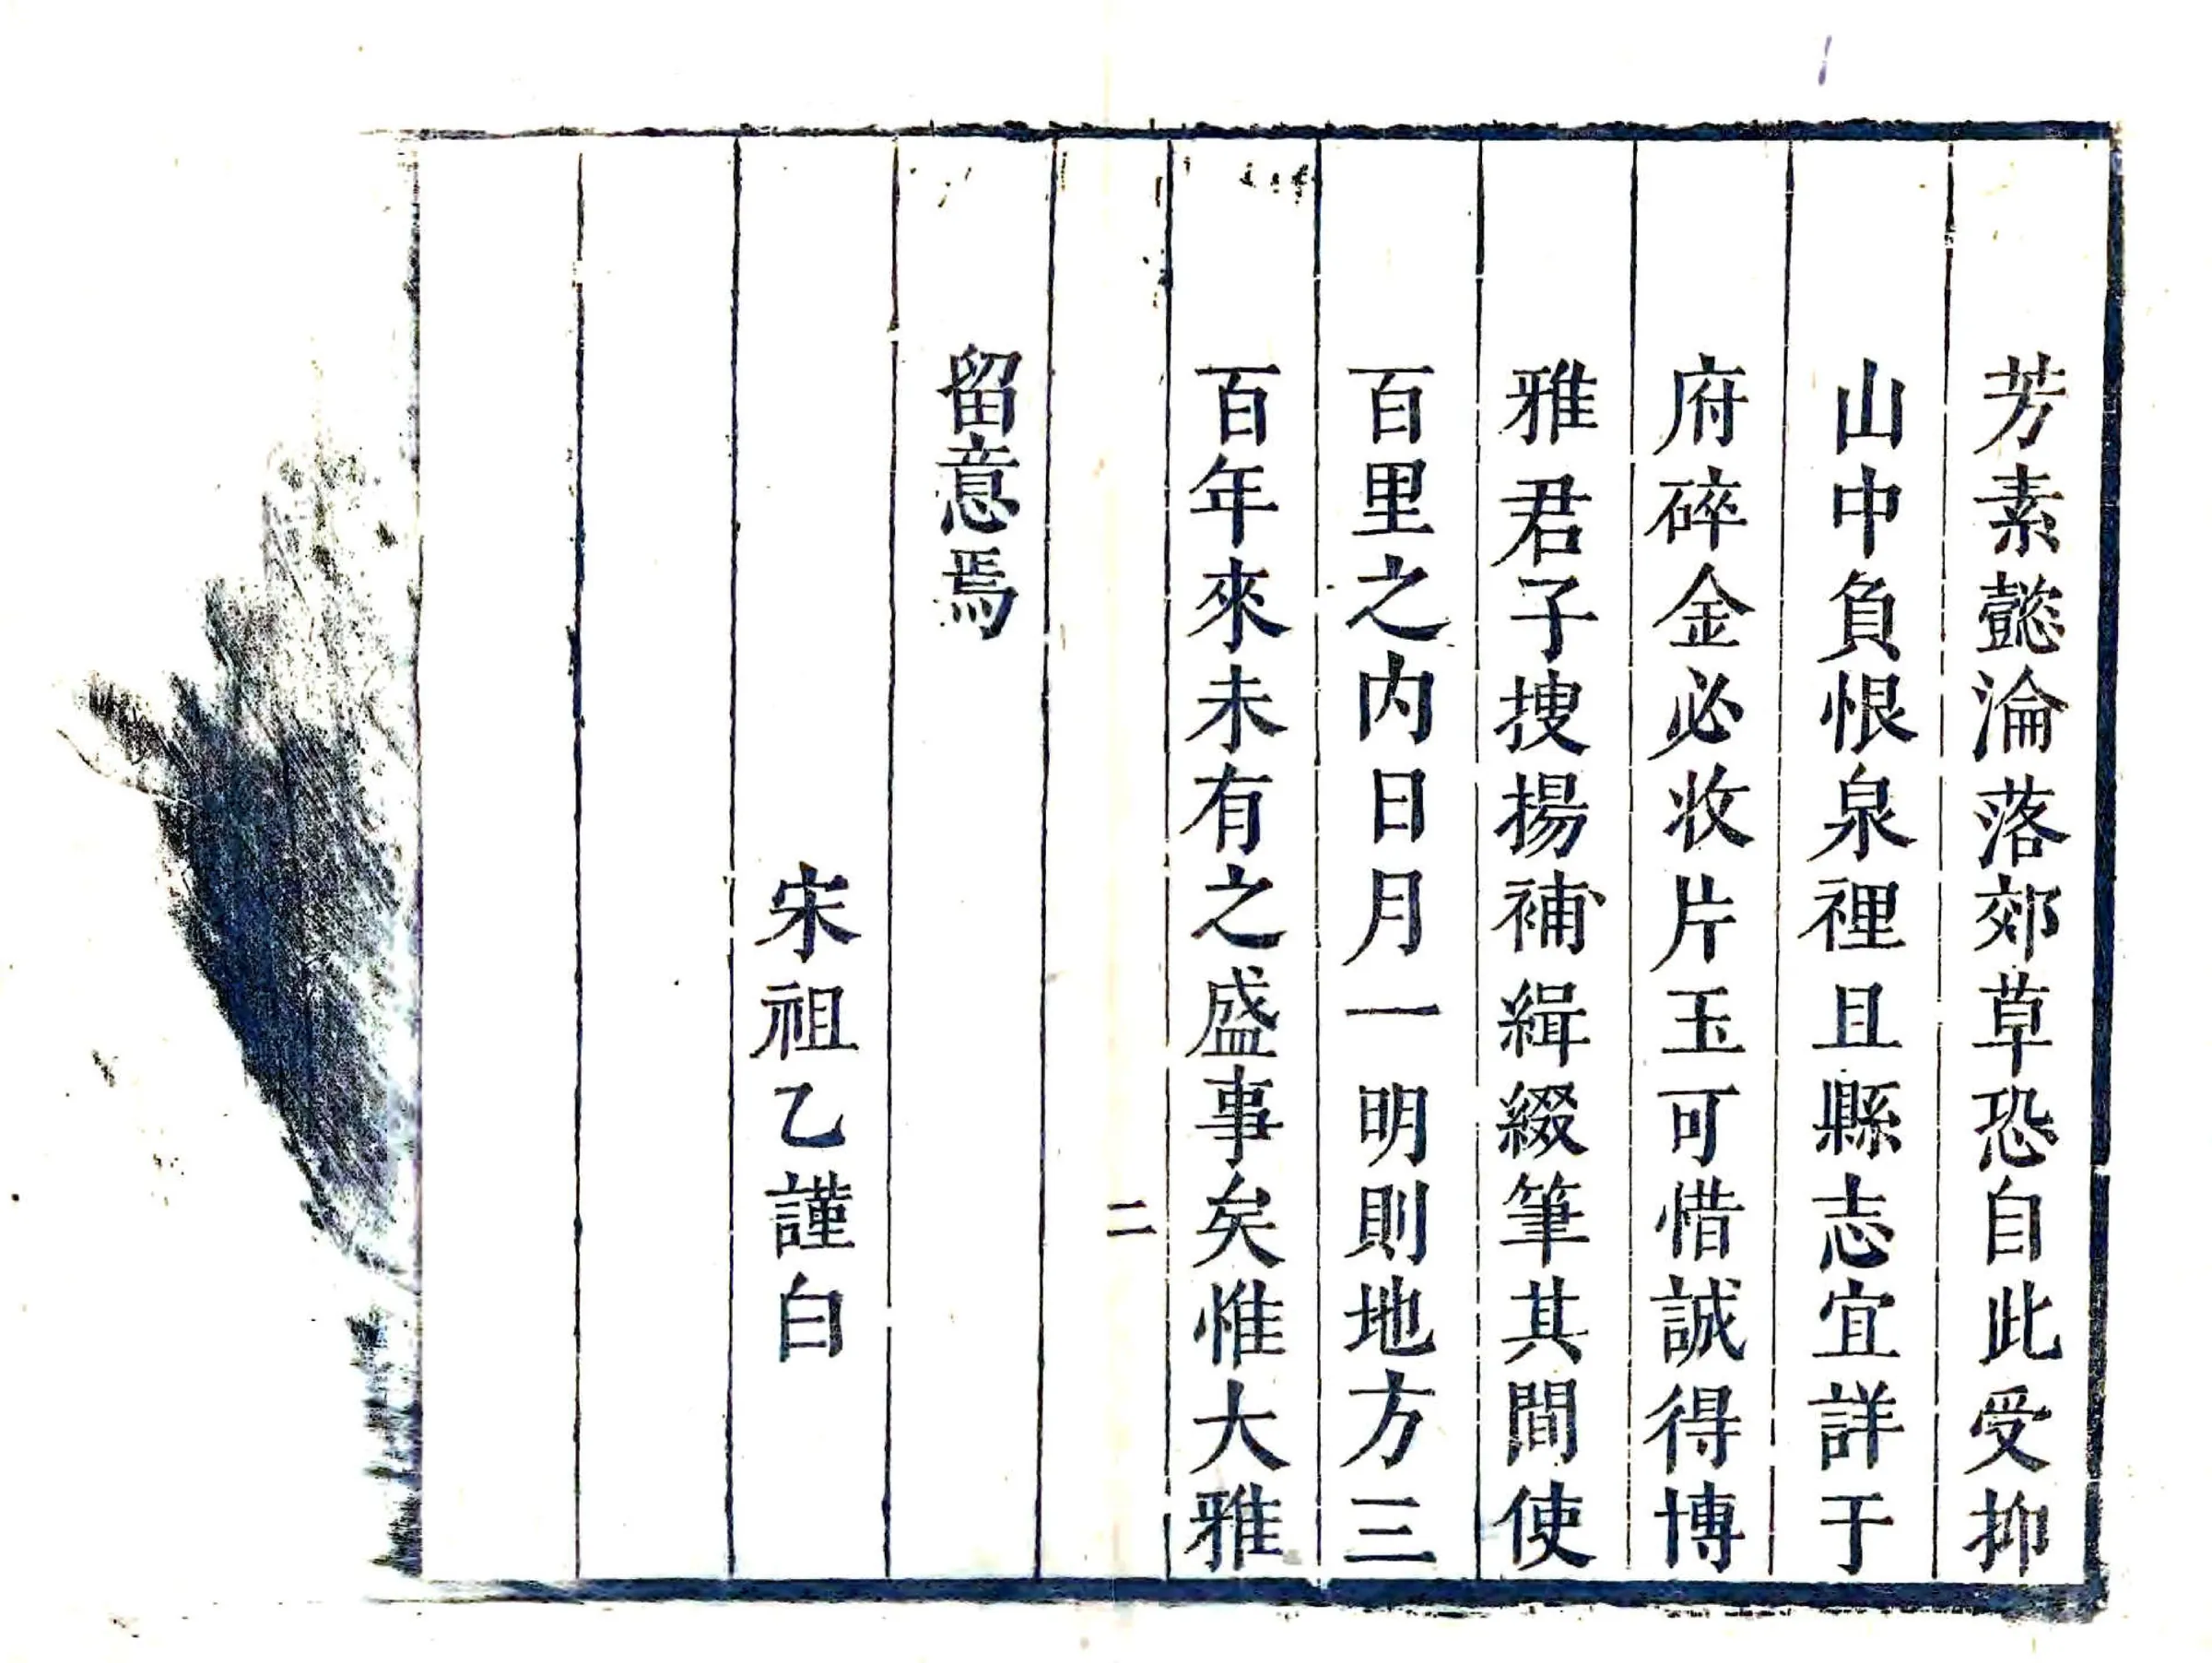 芳素懿淪落郊草恐自此受抑
山中負恨泉裡且縣志宜詳于
府碎金必收片玉可惜誠得博
雅君子搜揚補緝綴筆其間使
百里之内日月一明則地方三
百年來未有之盛事矣惟大雅
二
留意焉
宋祖乙謹白